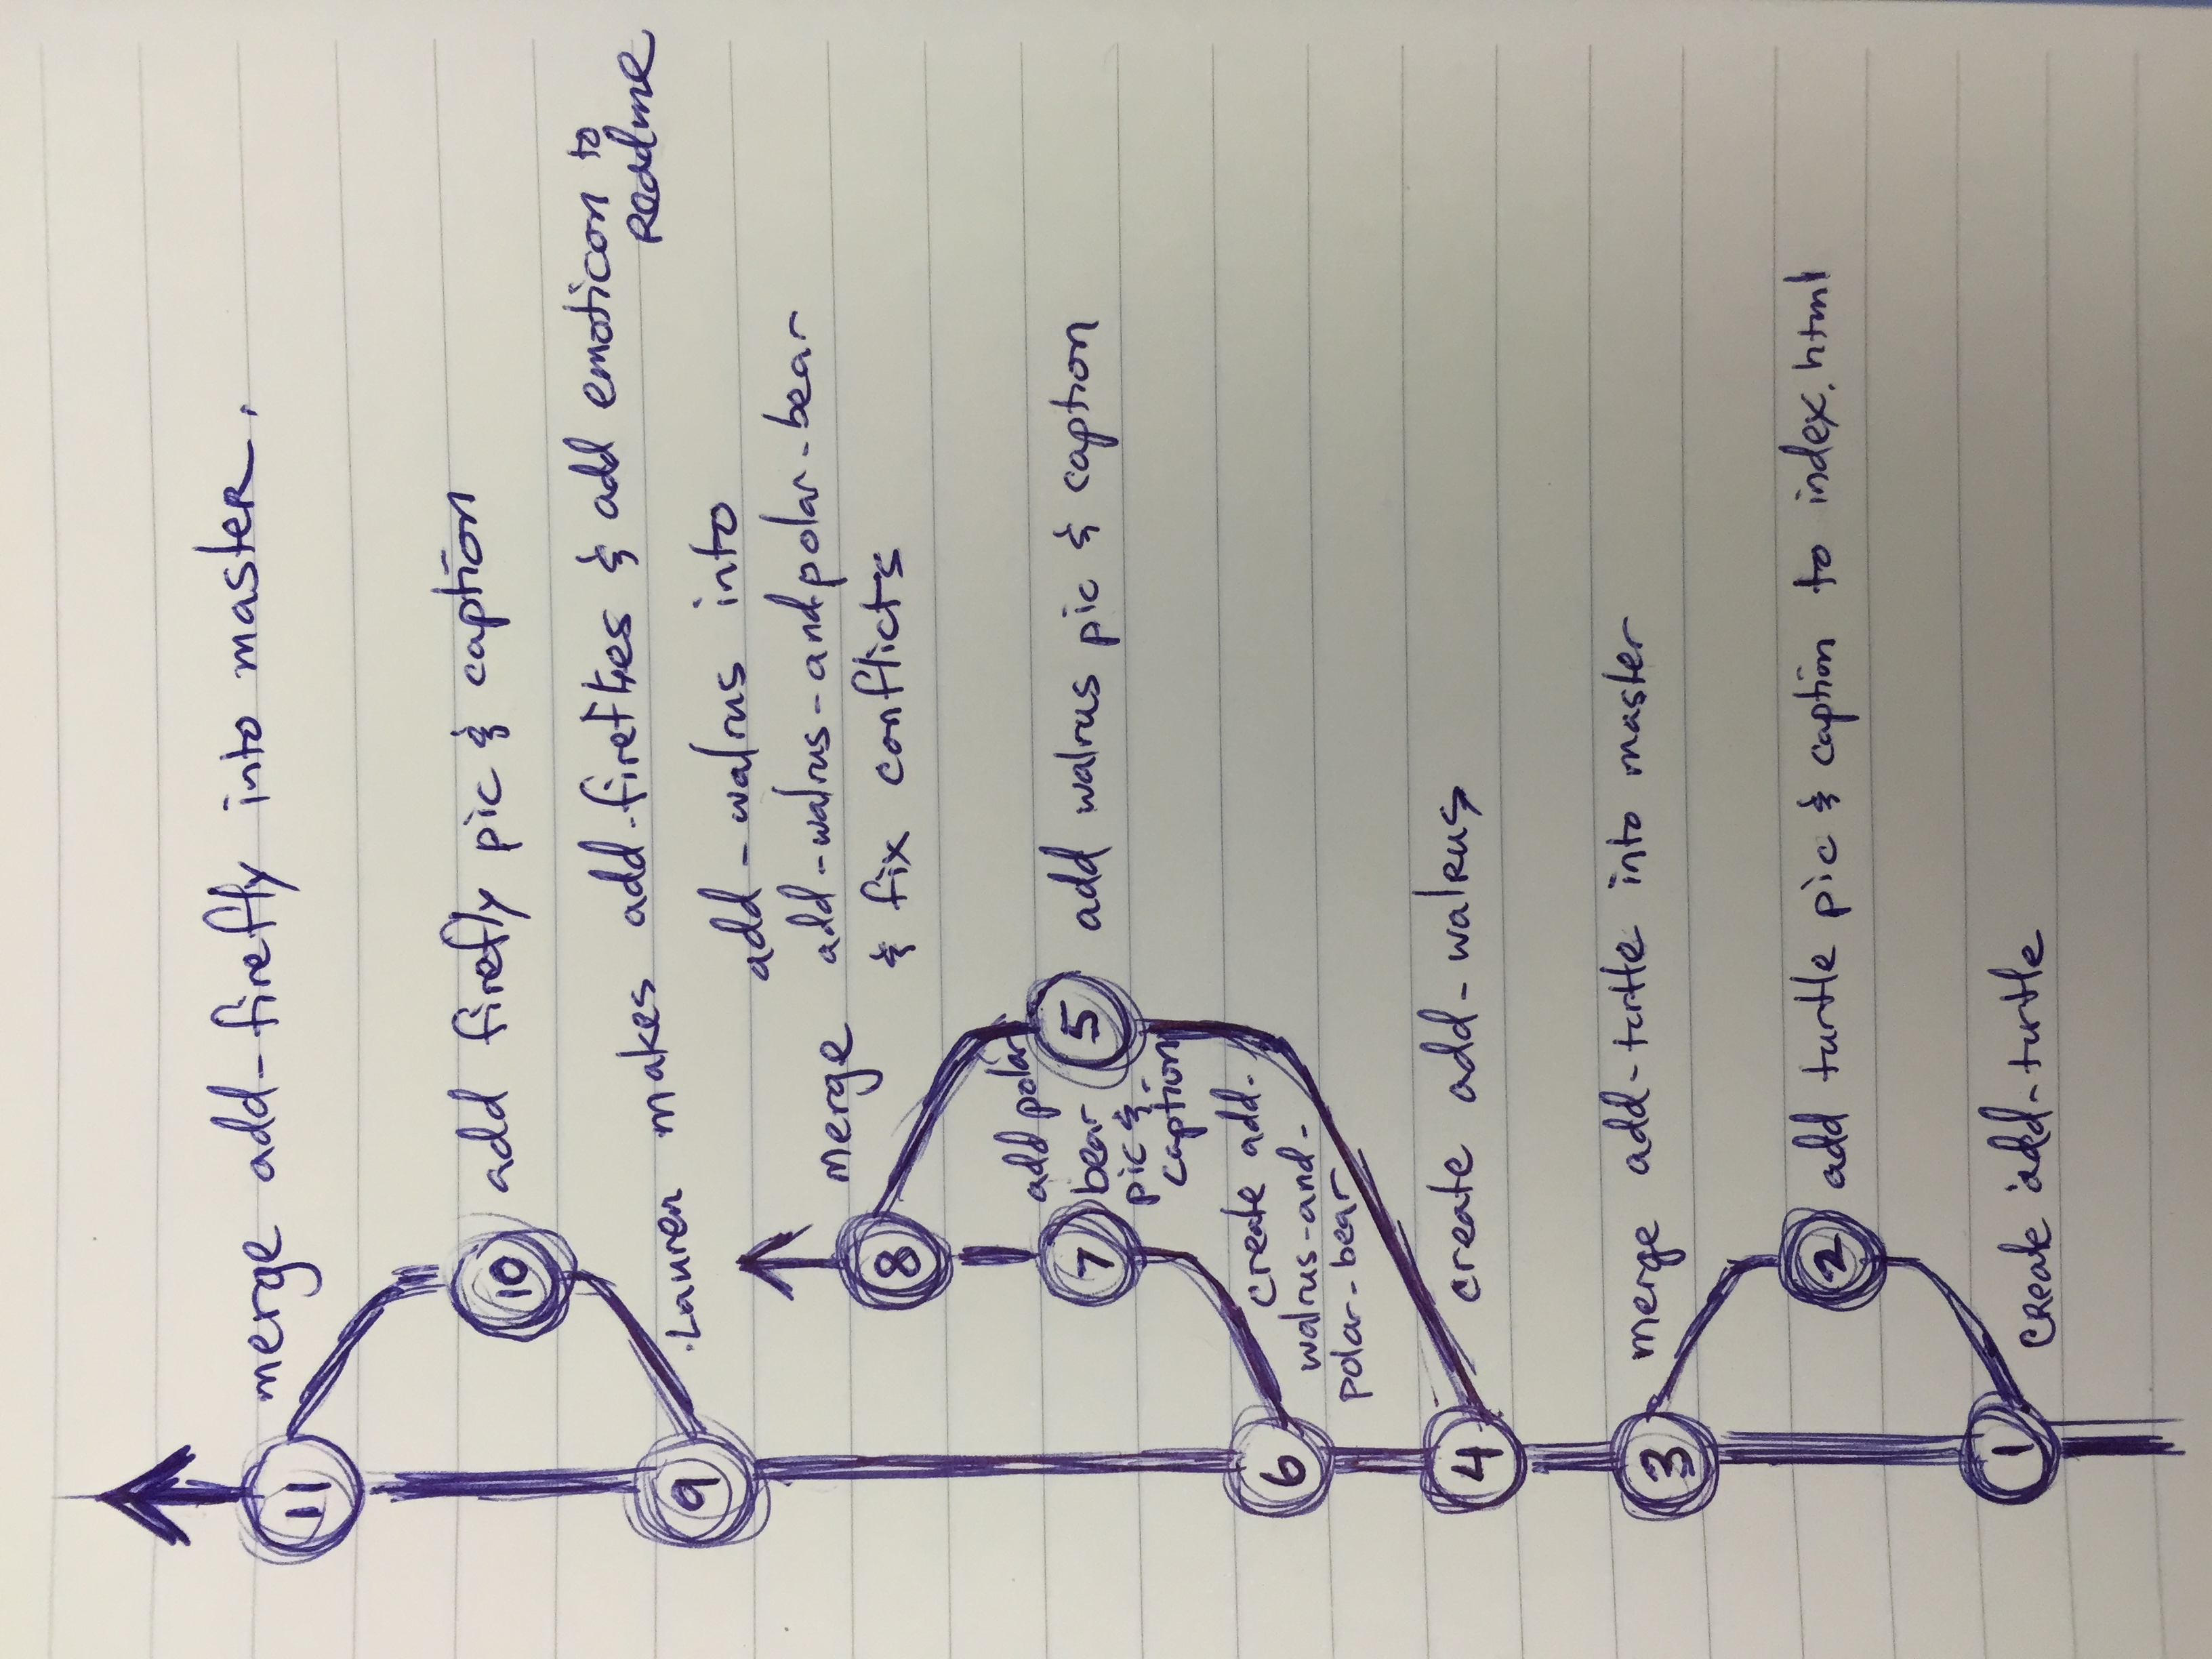 11 merge add-firefly into master.
10 add firefly pic & caption
9 Lauren makes add-fireflies & add emoticon to
Readme
add-walrus into
8 merge add-walrus-and polar-bear
& fix conflicts
7 add polar
bear
pic &
caption
5 add walrus pic & caption
6 create add-
walrus-and-
polar-bear
4 create add-walrus
3 merge add-turtle into master
2 add turtle pic & caption to index.html
1 create add-turtle